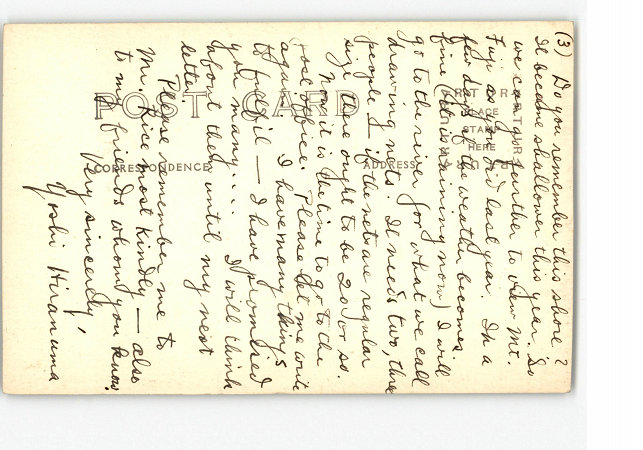 (3) Do you remember this shore?
It became shallower this year. So
we can go further to view Mt.
Fuji as you did last year. In a
few days if the weather becomes
fine (it is raining now) I will
go to the river for what we call
drawing nets. It needs two, three
people — if the nets are regular
size there ought to be 20 or so.
Now it is the time to go to the
office. Please let me write
again. I have many things
to fulfil — I have promised
you many... I will think
about them until my next
letter.
Please remember me to
Mr. Rice most kindly — also
to my friends whom you know.
Very sincerely,
Yoshi Hiranuma
POST CARD
CORRESPONDENCE
ADDRESS
PLACE
STAMP
HERE